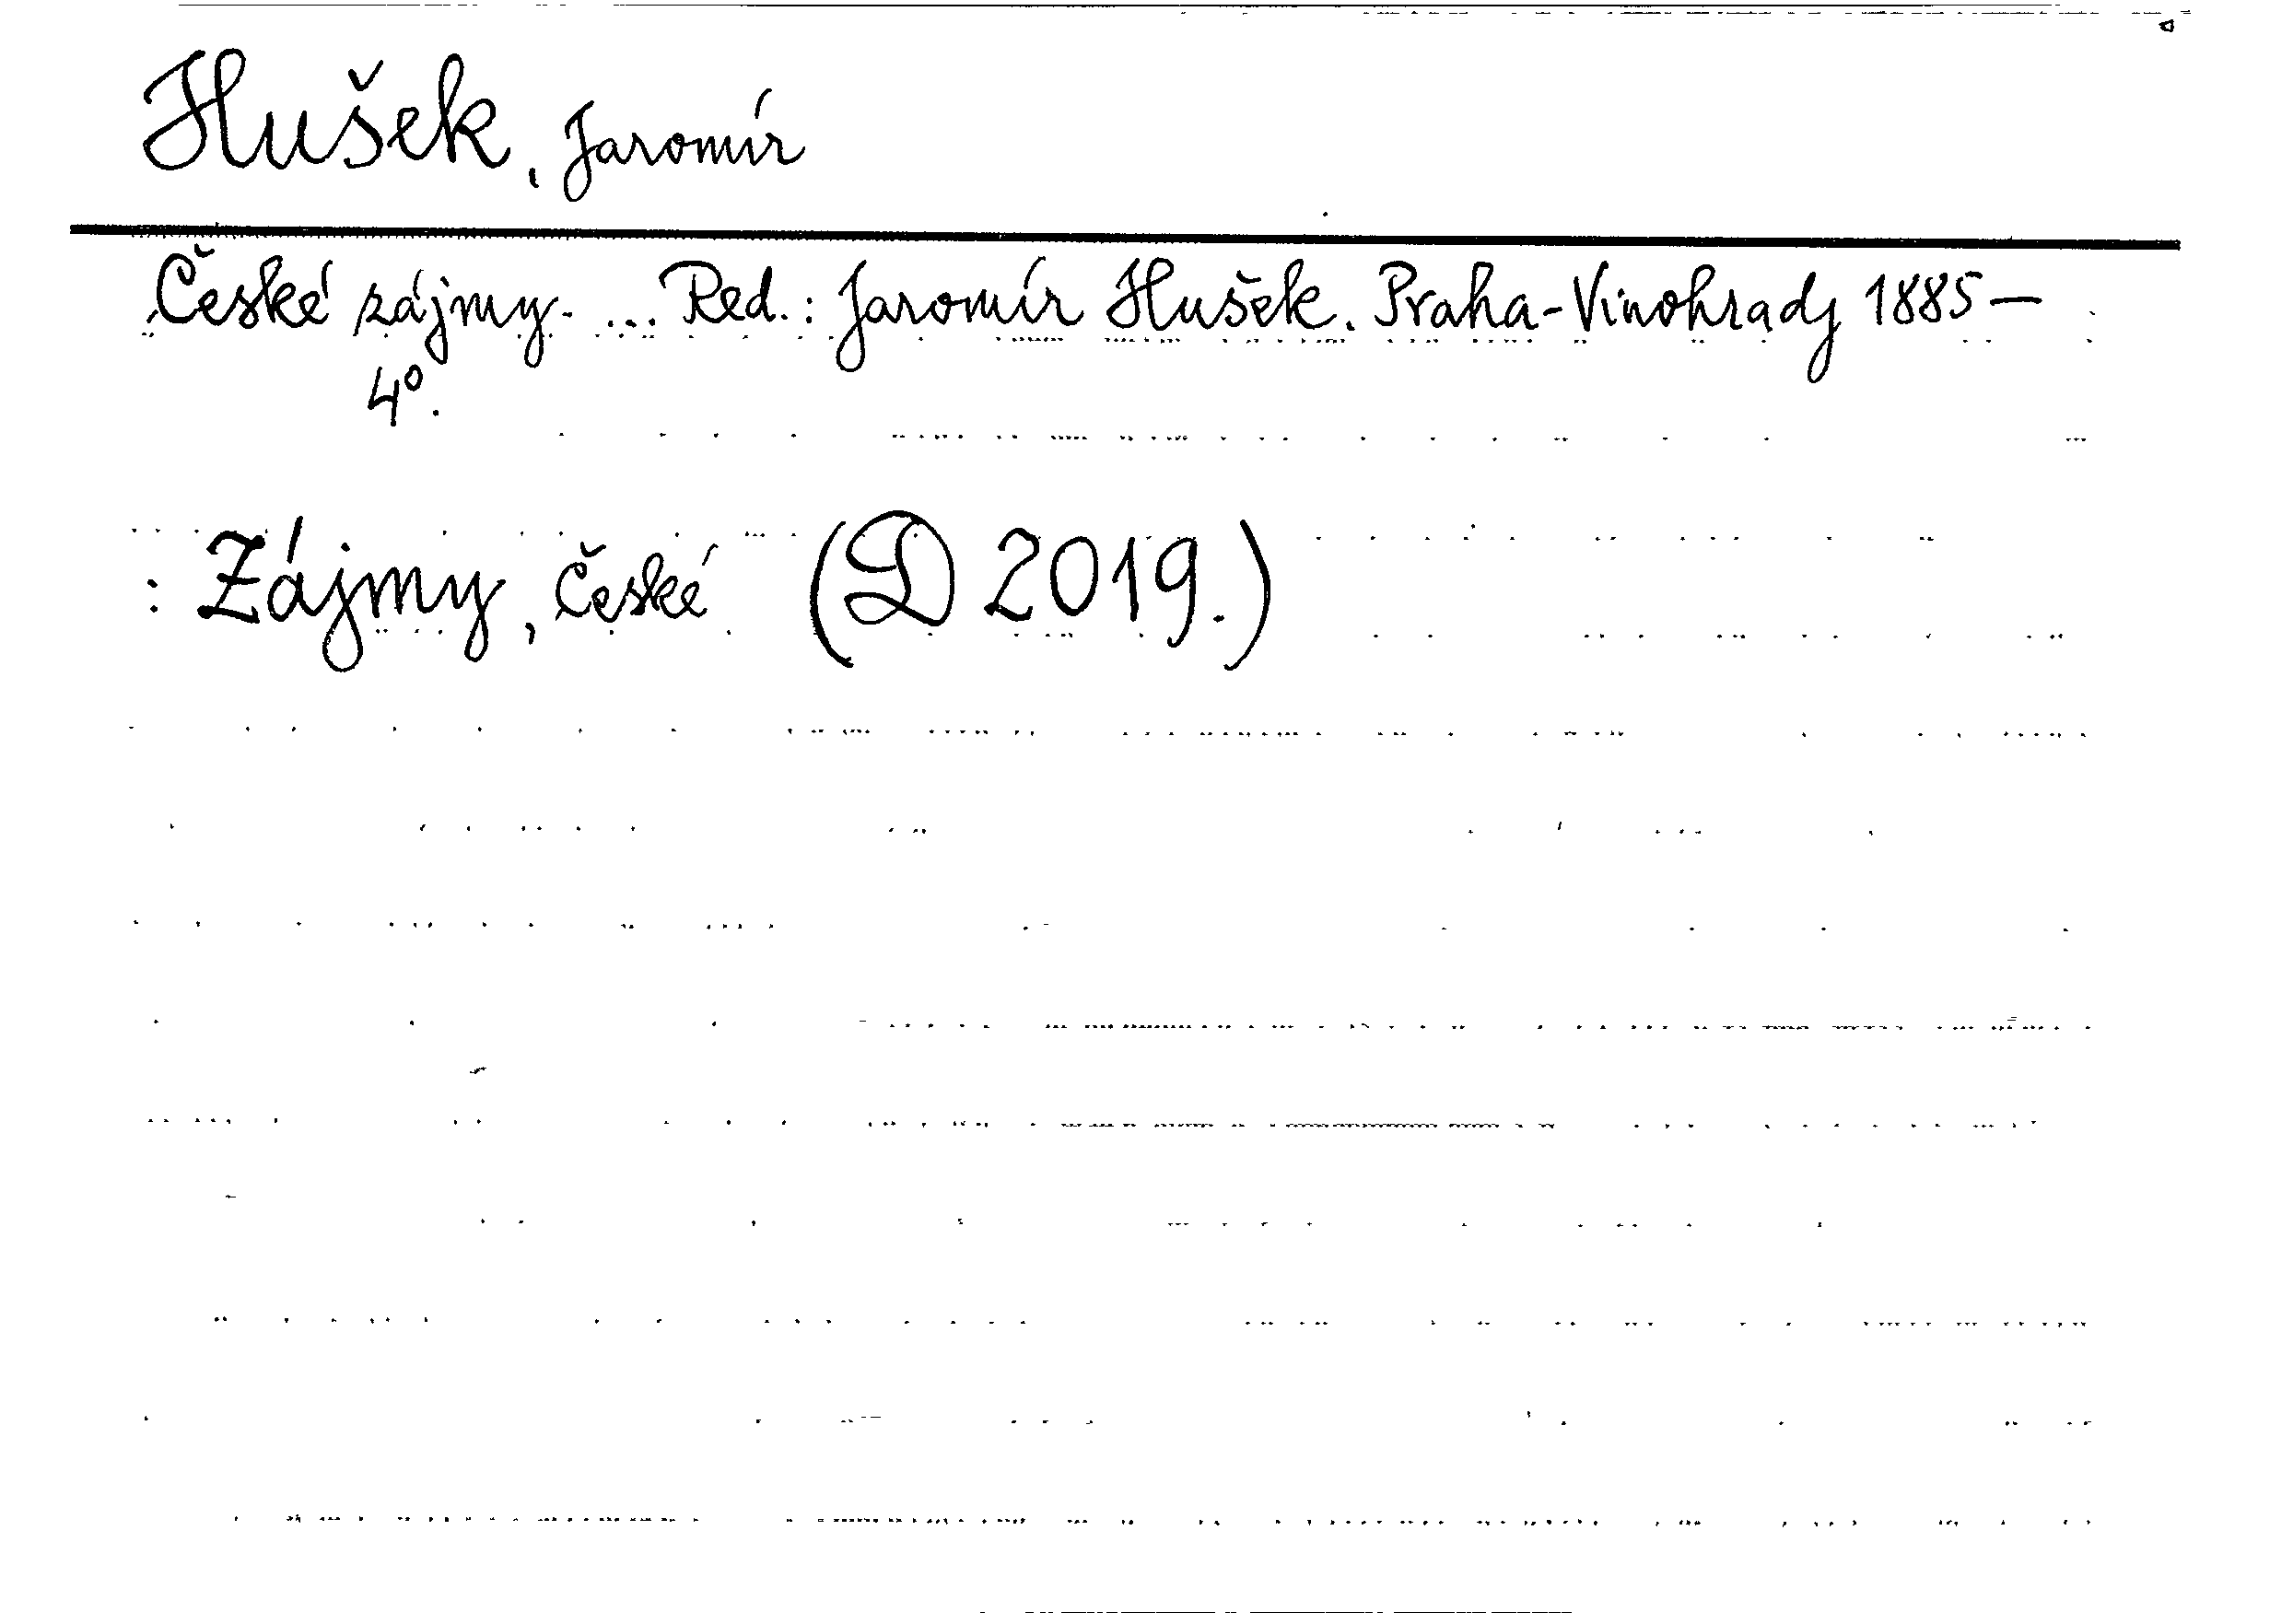 Hušek, Jaromír
České zájmy. ... Red.: Jaromír Hušek. Praha-Vinohrady 1885—
4°.
: Zájmy, České (D 2019.)